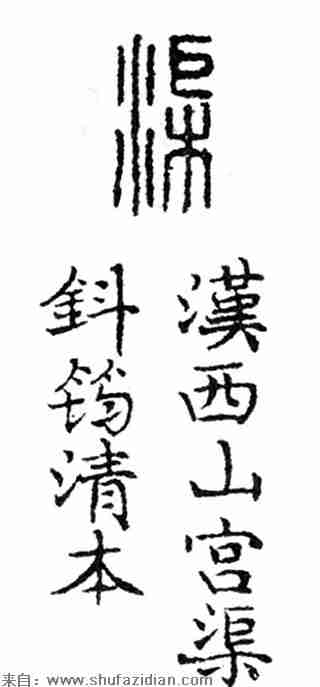 渠
漢西山宫渠
鈄筠清本
来自：www.shufazidian.com